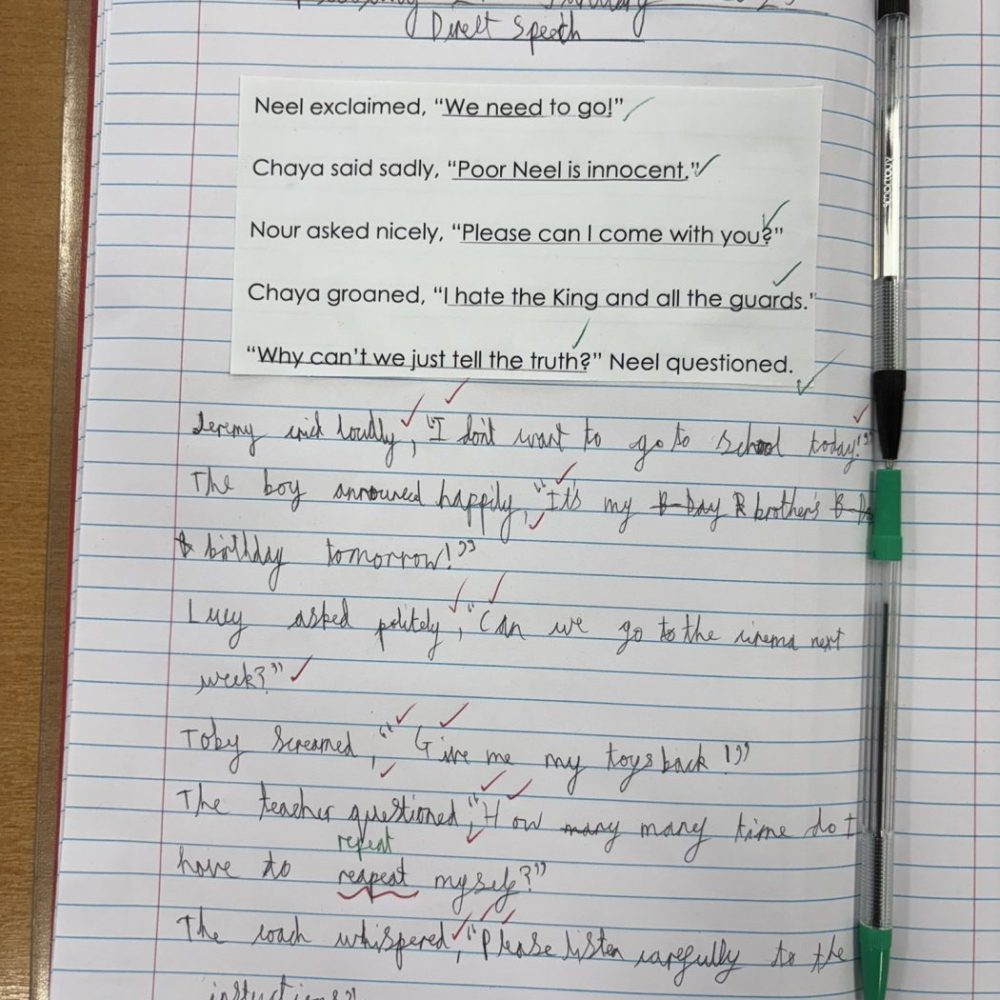 Direct Speech
Neel exclaimed, “We need to go!”
Chaya said sadly, “Poor Neel is innocent.”
Nour asked nicely, “Please can I come with you?”
Chaya groaned, “I hate the King and all the guards.”
“Why can’t we just tell the truth?” Neel questioned.
Jeremy loudly, “I don't want to go to school today!”
The boy announced happily, “It's my B-Day brother's
birthday tomorrow!”
Lucy asked politely, “Can we go to the cinema next
week?”
Toby screamed, “Give me my toys back!”
The teacher questioned, “How many many time do I
repeat
have to reapeat myself?”
The coach whispered, “Please listen carefully to the